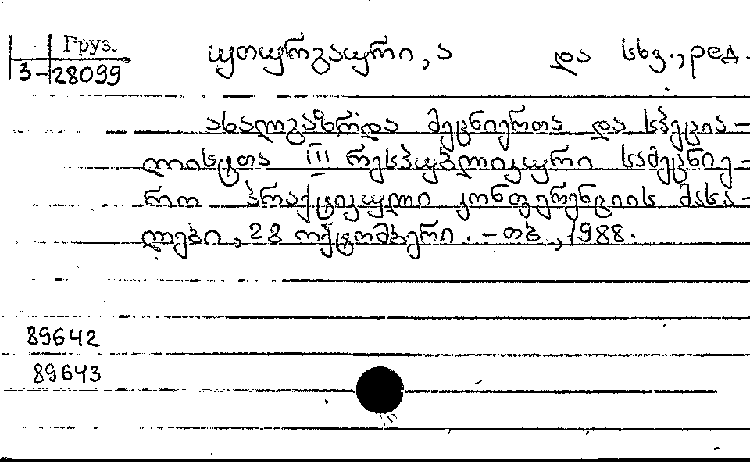 Груз.
3-28099
უთურგაური, ა და სხვ., ред.
ახალგაზრდა მეცნიერთა და სპეცია-
ლისტთა III რესპუბლიკური სამეცნიე-
რო პრაქტიკული კონფერენციის მასა-
ლები, 28 ოქტომბერი. - თბ., 1988.
89642
89643